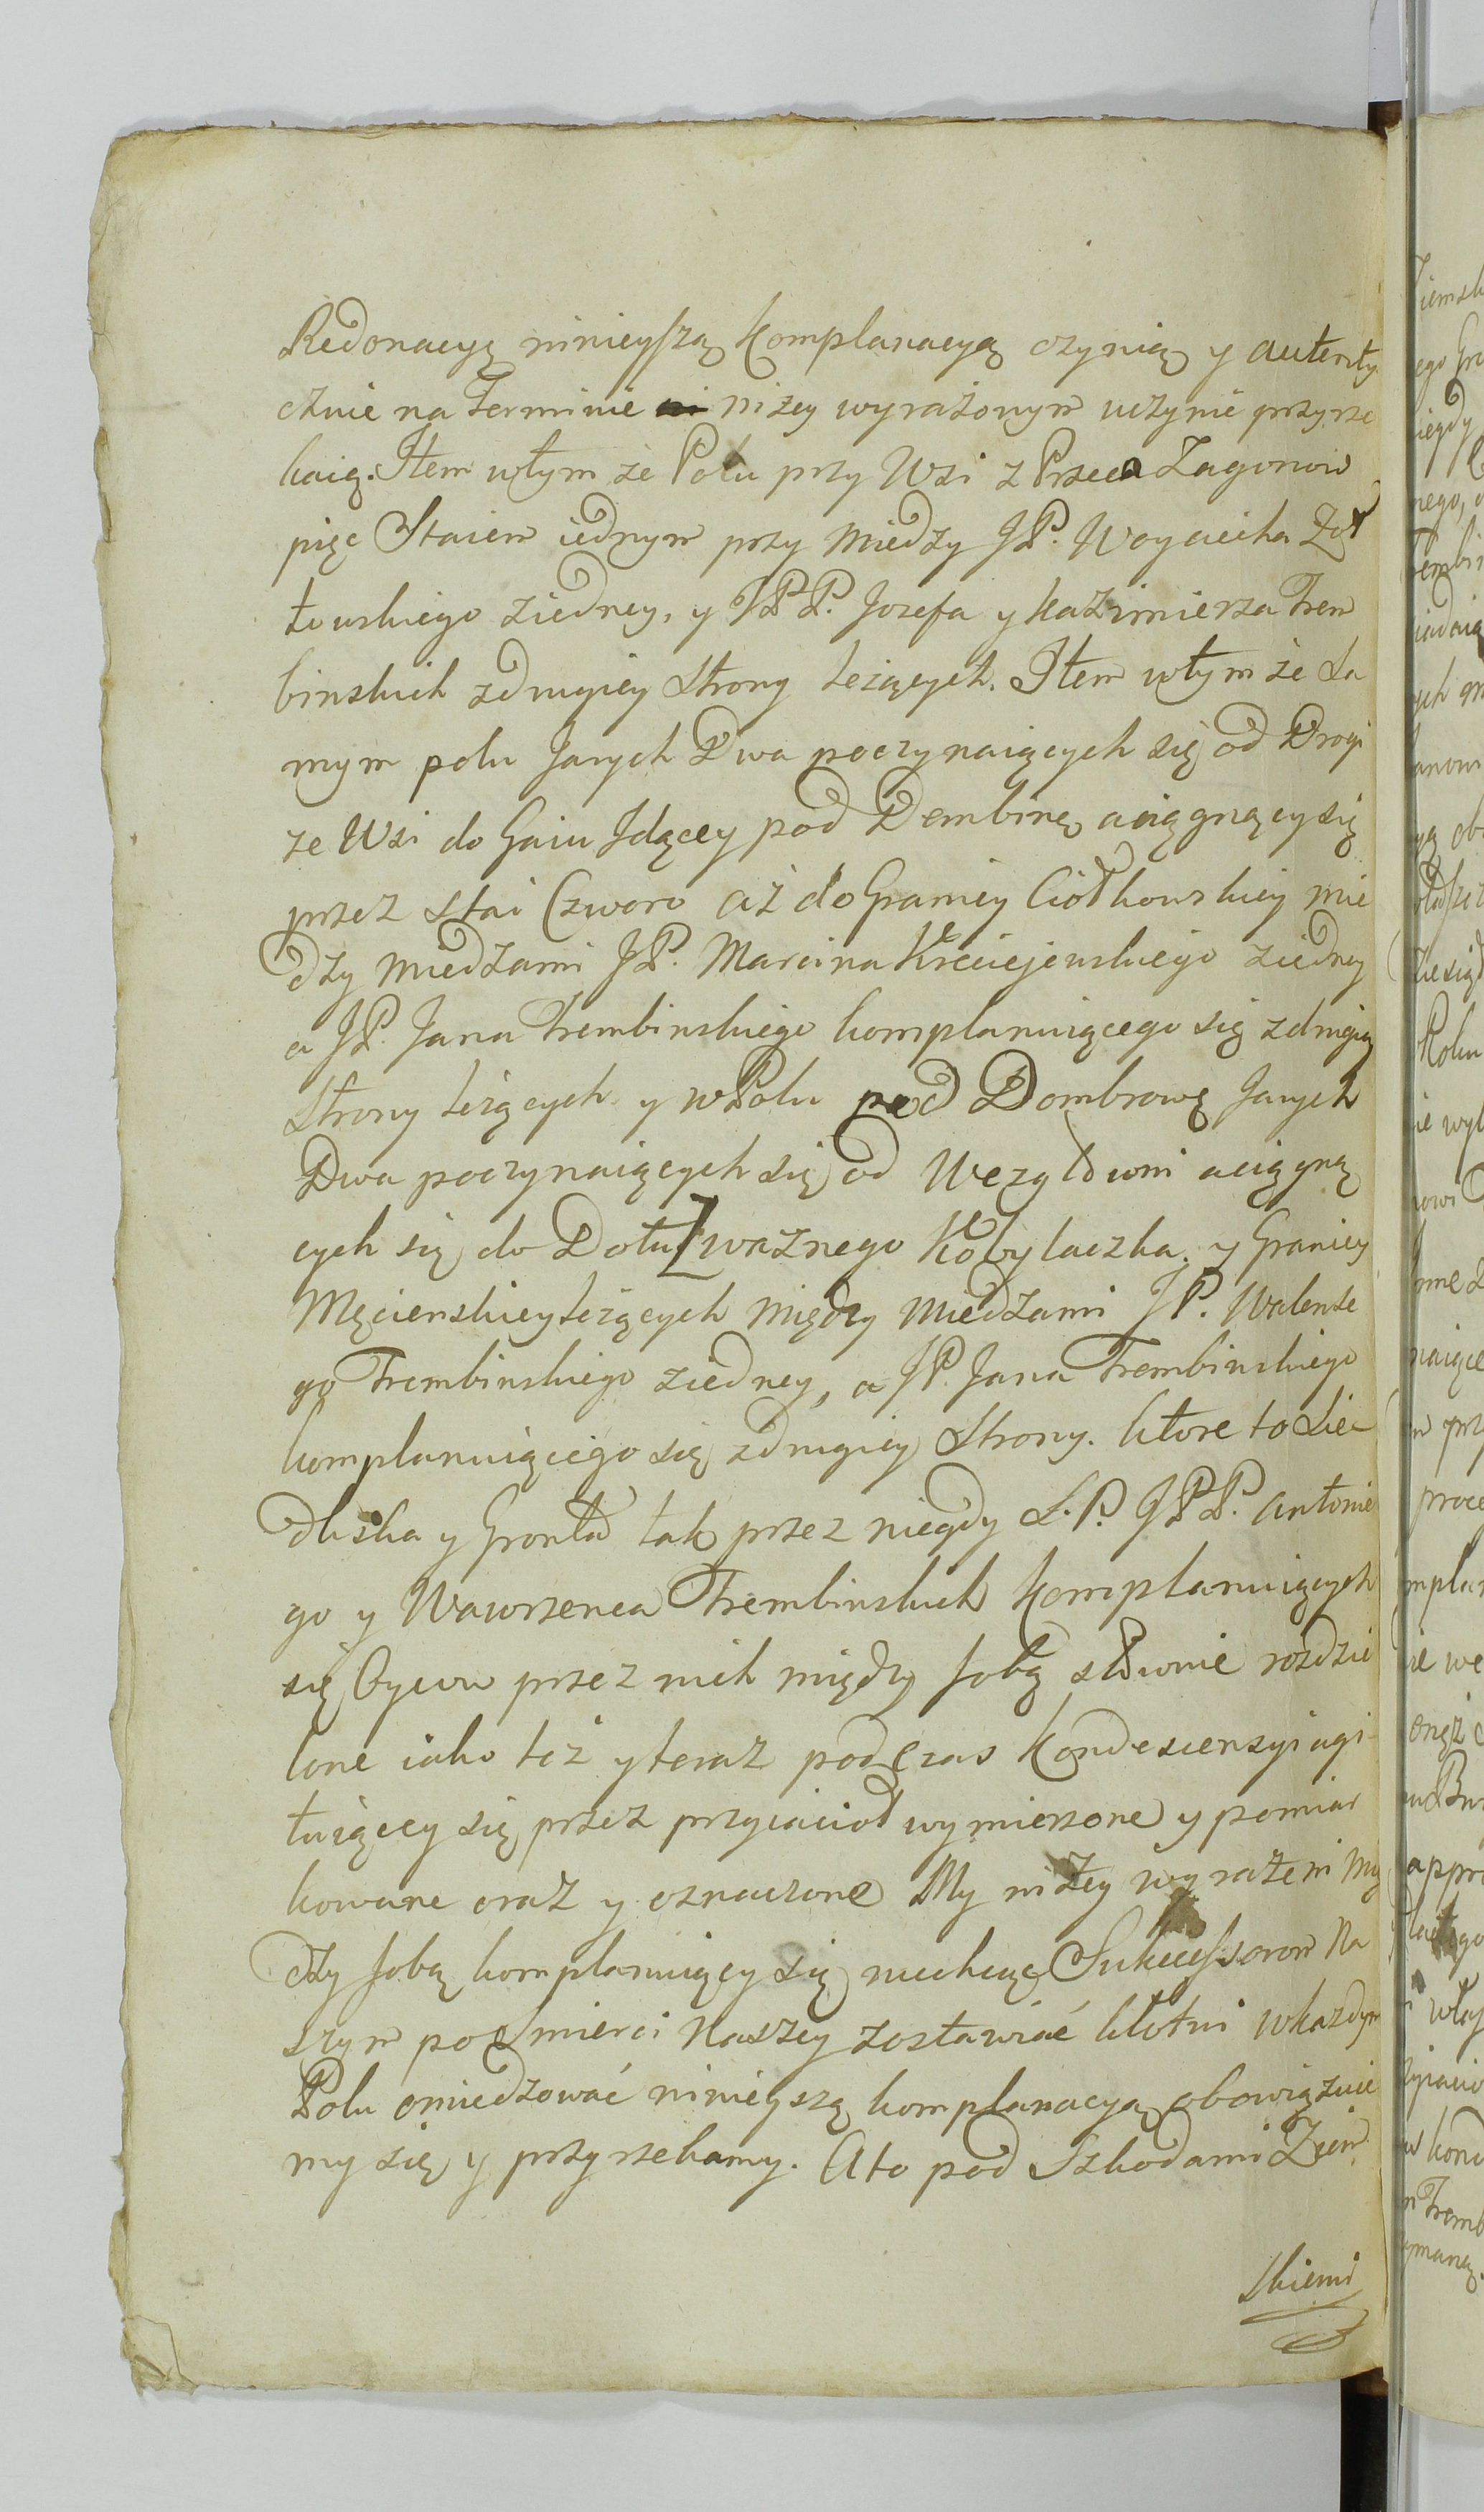 Redonacyą ninieyszą Komplanacyą czynią y autenty
cznie na Terminie niżey wyrażonym uczynić przyrze
kaią. Item wtym że Polu przy Wsi z Przecza Zagonow
pięc Staiem iednym przy Miedzy JP. Woyciecha Zół
towskiego ziedney, y JPP. Jozefa y Kazimierza Trem
binskich zdrugiey Strony leżących. Item wtym że Sa
mym polu Janych Dwa poczynaiących się od Drogi
ze Wsi do Gaiu Jdącey pod Dembinę aciągnący się
przez stai Czworo aż do Granicy Ciółkowskiey mie
dzy miedzami JP. Marcina Kreciejewskiego ziedney
a JP. Jana Trembinskiego komplanuiącego się zdrugiey
Strony leżących y w Polu pod Dombrową Janych
Dwa poczynaiących się od Wezgłowni aciągną
cych się do Dołu Zwaznego Kobylaczka y Granicy
Męcienskiey leżących między miedzami JP. Walente
go Trembinskiego ziedney, a JP. Jana Trembinskiego
komplanuiącego się zdrugiey Strony. ktore to Sie
dliska y Gronta tak przez niegdy S. P. JPP. Antonie
go y Wawrzenca Trembinskich Komplanuiących
się Oycow przez nich między sobą słownie rozdzie
lone iako też y teraz podczas Kondescensyi agi
tuiącey się przez przyiacioł wymierzone y pomiar
kowane oraz y oznaczone My niżey wyrażeni mię
dzy sobą komplanuiący się niechcąc Sukcessorom Na
szym po Smierci Naszey zostawiać kłotni wkażdym
Polu omiedzować ninieyszą komplanacyą obowiązuie
my się y przyrzekamy. Ato pod Szkodami Ziem
skiemi